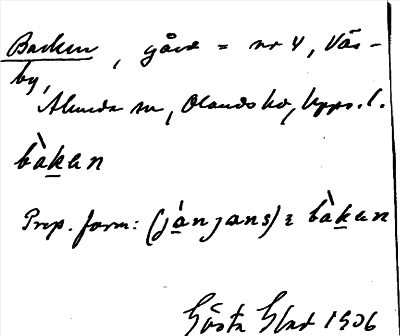 Backen, gård = nr 4, Väs-
by,
Almunge sn, Olands hd, Upps. l.
bàkan
Prep. form: (jánjans) i bàkan
Gösta Blad 1906